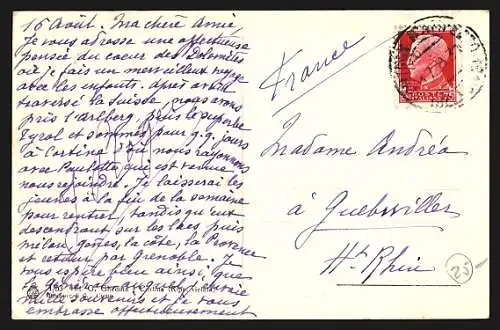 16 Août. Ma chère Amie
Je vous adresse une affectueuse
pensée du coeur des Dolomites
où je fais un merveilleux voyage
avec les enfants. après avoir
traversé la Suisse, nous avons
pris l'Arlberg, puis le superbe
Tyrol et sommes pour q.q. jours
à Cortina d'où nous rayonnons
avec Paulette qui est venue
nous rejoindre. Je laisserai les
jeunes à la fin de la semaine
pour rentrer, tandis qu'eux
descendront sur les lacs puis
milan, gênes, la côte, la Provence
et retour par Grenoble. Je
vous espère bien ainsi, que
mille souvenirs et je vous
embrasse affectueusement
France
Madame Andréa
à Guebwiller
Ht Rhin
25